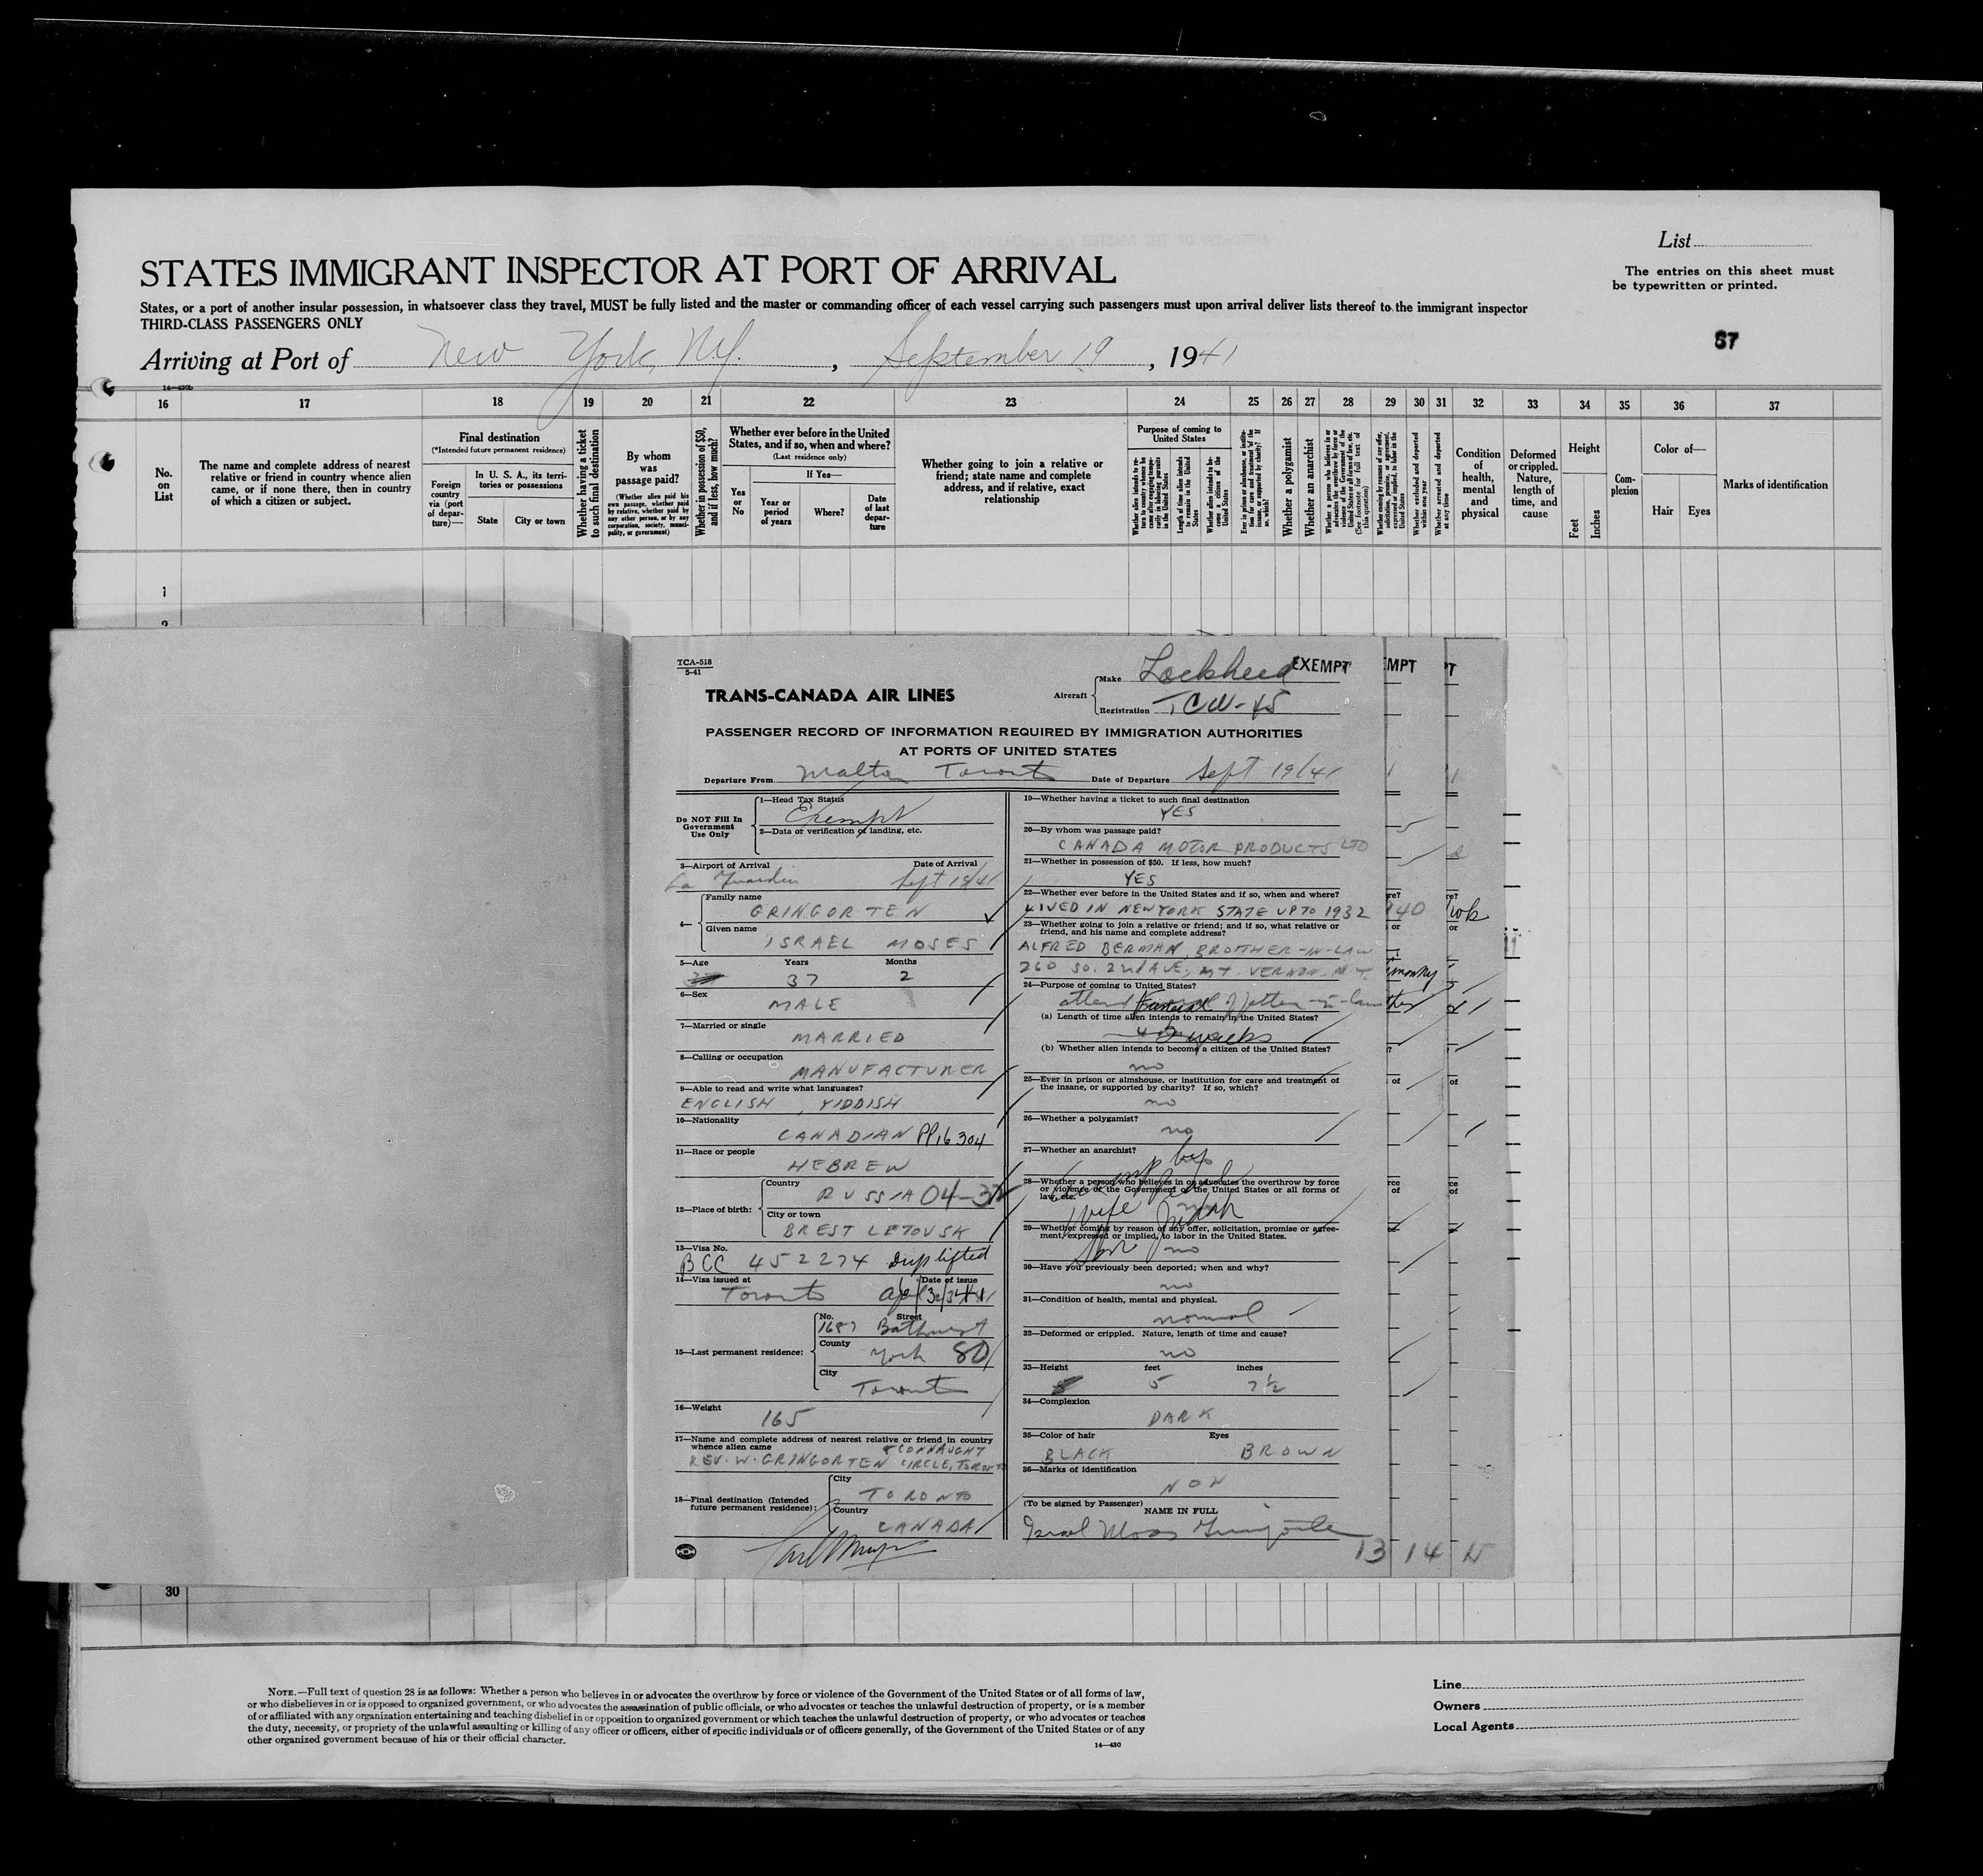 List
STATES IMMIGRANT INSPECTOR AT PORT OF ARRIVAL
The entries on this sheet must
be typewritten or printed.
States, or a port of another insular possession, in whatsoever class they travel, MUST be fully listed and the master or commanding officer of each vessel carrying such passengers must upon arrival deliver lists thereof to the immigrant inspector
THIRD-CLASS PASSENGERS ONLY
67
Arriving at Port of New York, N.Y. , September 19 , 1941
16 17 18 19 20 21 22 23 24 25 26 27 28 29 30 31 32 33 34 35 36 37
No. on List
The name and complete address of nearest relative or friend in country whence alien came, or if none there, then in country of which a citizen or subject.
Final destination
(*Intended future permanent residence)
Foreign country via (port of departure)—
In U. S. A., its territories or possessions
State
City or town
Whether having a ticket to such final destination
By whom was passage paid?
(Whether alien paid his own passage, whether paid by relative, whether paid by any other person, or by any corporation, society, municipality, or government)
Whether in possession of $50, and if less, how much?
Whether ever before in the United States, and if so, when and where?
(Last residence only)
Yes or No
If Yes—
Year or period of years
Where?
Date of last departure
Whether going to join a relative or friend; state name and complete address, and if relative, exact relationship
Purpose of coming to United States
Whether a polygamist
Whether an anarchist
Whether arrested and deported at any time
Condition of health, mental and physical
Deformed or crippled. Nature, length of time, and cause
Height
Feet
Inches
Complexion
Color of—
Hair
Eyes
Marks of identification
1
2
TCA-518
5-41
TRANS-CANADA AIR LINES
Aircraft
Make Lockheed
EXEMPT
Registration TCW-45
PASSENGER RECORD OF INFORMATION REQUIRED BY IMMIGRATION AUTHORITIES
AT PORTS OF UNITED STATES
Departure From Malton Toronto Date of Departure Sept 19/41
Do NOT Fill In
Government
Use Only
1—Head Tax Status
Exempt
2—Data or verification of landing, etc.
3—Airport of Arrival Date of Arrival
La Guardia Sept 19/41
4—
Family name
GRINGORTEN
Given name
ISRAEL MOSES
5—Age Years Months
37 2
6—Sex
MALE
7—Married or single
MARRIED
8—Calling or occupation
MANUFACTURER
9—Able to read and write what languages?
ENGLISH, YIDDISH
10—Nationality
CANADIAN PP16304
11—Race or people
HEBREW
12—Place of birth:
Country
RUSSIA 04-32
City or town
BREST LETOVSK
13—Visa No.
BCC 452274 Dup lifted
14—Visa issued at Date of issue
Toronto
15—Last permanent residence:
No. Street
1687 Bathurst
County
York 80
City
Toronto
16—Weight
165
17—Name and complete address of nearest relative or friend in country
whence alien came
CONNAUGHT
REV. W. GRINGORTEN CIRCLE, TORONTO
18—Final destination (Intended
future permanent residence):
City
TORONTO
Country
CANADA
19—Whether having a ticket to such final destination
YES
20—By whom was passage paid?
CANADA MOTOR PRODUCTS LTD
21—Whether in possession of $50. If less, how much?
YES
22—Whether ever before in the United States and if so, when and where?
LIVED IN NEW YORK STATE UP TO 1932
23—Whether going to join a relative or friend; and if so, what relative or
friend, and his name and complete address?
ALFRED BERMAN, BROTHER-IN-LAW
260 SO. 2nd AVE, MT. VERNON. N.Y.
24—Purpose of coming to United States?
attend Funeral of
(a) Length of time alien intends to remain in the United States?
2 weeks
(b) Whether alien intends to become a citizen of the United States?
no
25—Ever in prison or almshouse, or institution for care and treatment of
the insane, or supported by charity? If so, which?
no
26—Whether a polygamist?
no
27—Whether an anarchist?
28—Whether a person who believes in or advocates the overthrow by force
or violence of the Government of the United States or all forms of
law, etc.
wife Judah
29—Whether coming by reason of any offer, solicitation, promise or agree-
ment, expressed or implied, to labor in the United States.
no
30—Have you previously been deported; when and why?
no
31—Condition of health, mental and physical.
normal
32—Deformed or crippled. Nature, length of time and cause?
no
33—Height feet inches
5 7½
34—Complexion
DARK
35—Color of hair Eyes
BLACK BROWN
36—Marks of identification
NON
(To be signed by Passenger)
NAME IN FULL
Israel Moses Gringorten
13 14 15
30
NOTE.—Full text of question 28 is as follows: Whether a person who believes in or advocates the overthrow by force or violence of the Government of the United States or of all forms of law,
or who disbelieves in or is opposed to organized government, or who advocates the assassination of public officials, or who advocates or teaches the unlawful destruction of property, or is a member
of or affiliated with any organization entertaining and teaching disbelief in or opposition to organized government or which teaches the unlawful destruction of property, or who advocates or teaches
the duty, necessity, or propriety of the unlawful assaulting or killing of any officer or officers, either of specific individuals or of officers generally, of the Government of the United States or of any
other organized government because of his or their official character.
14—430
Line
Owners
Local Agents